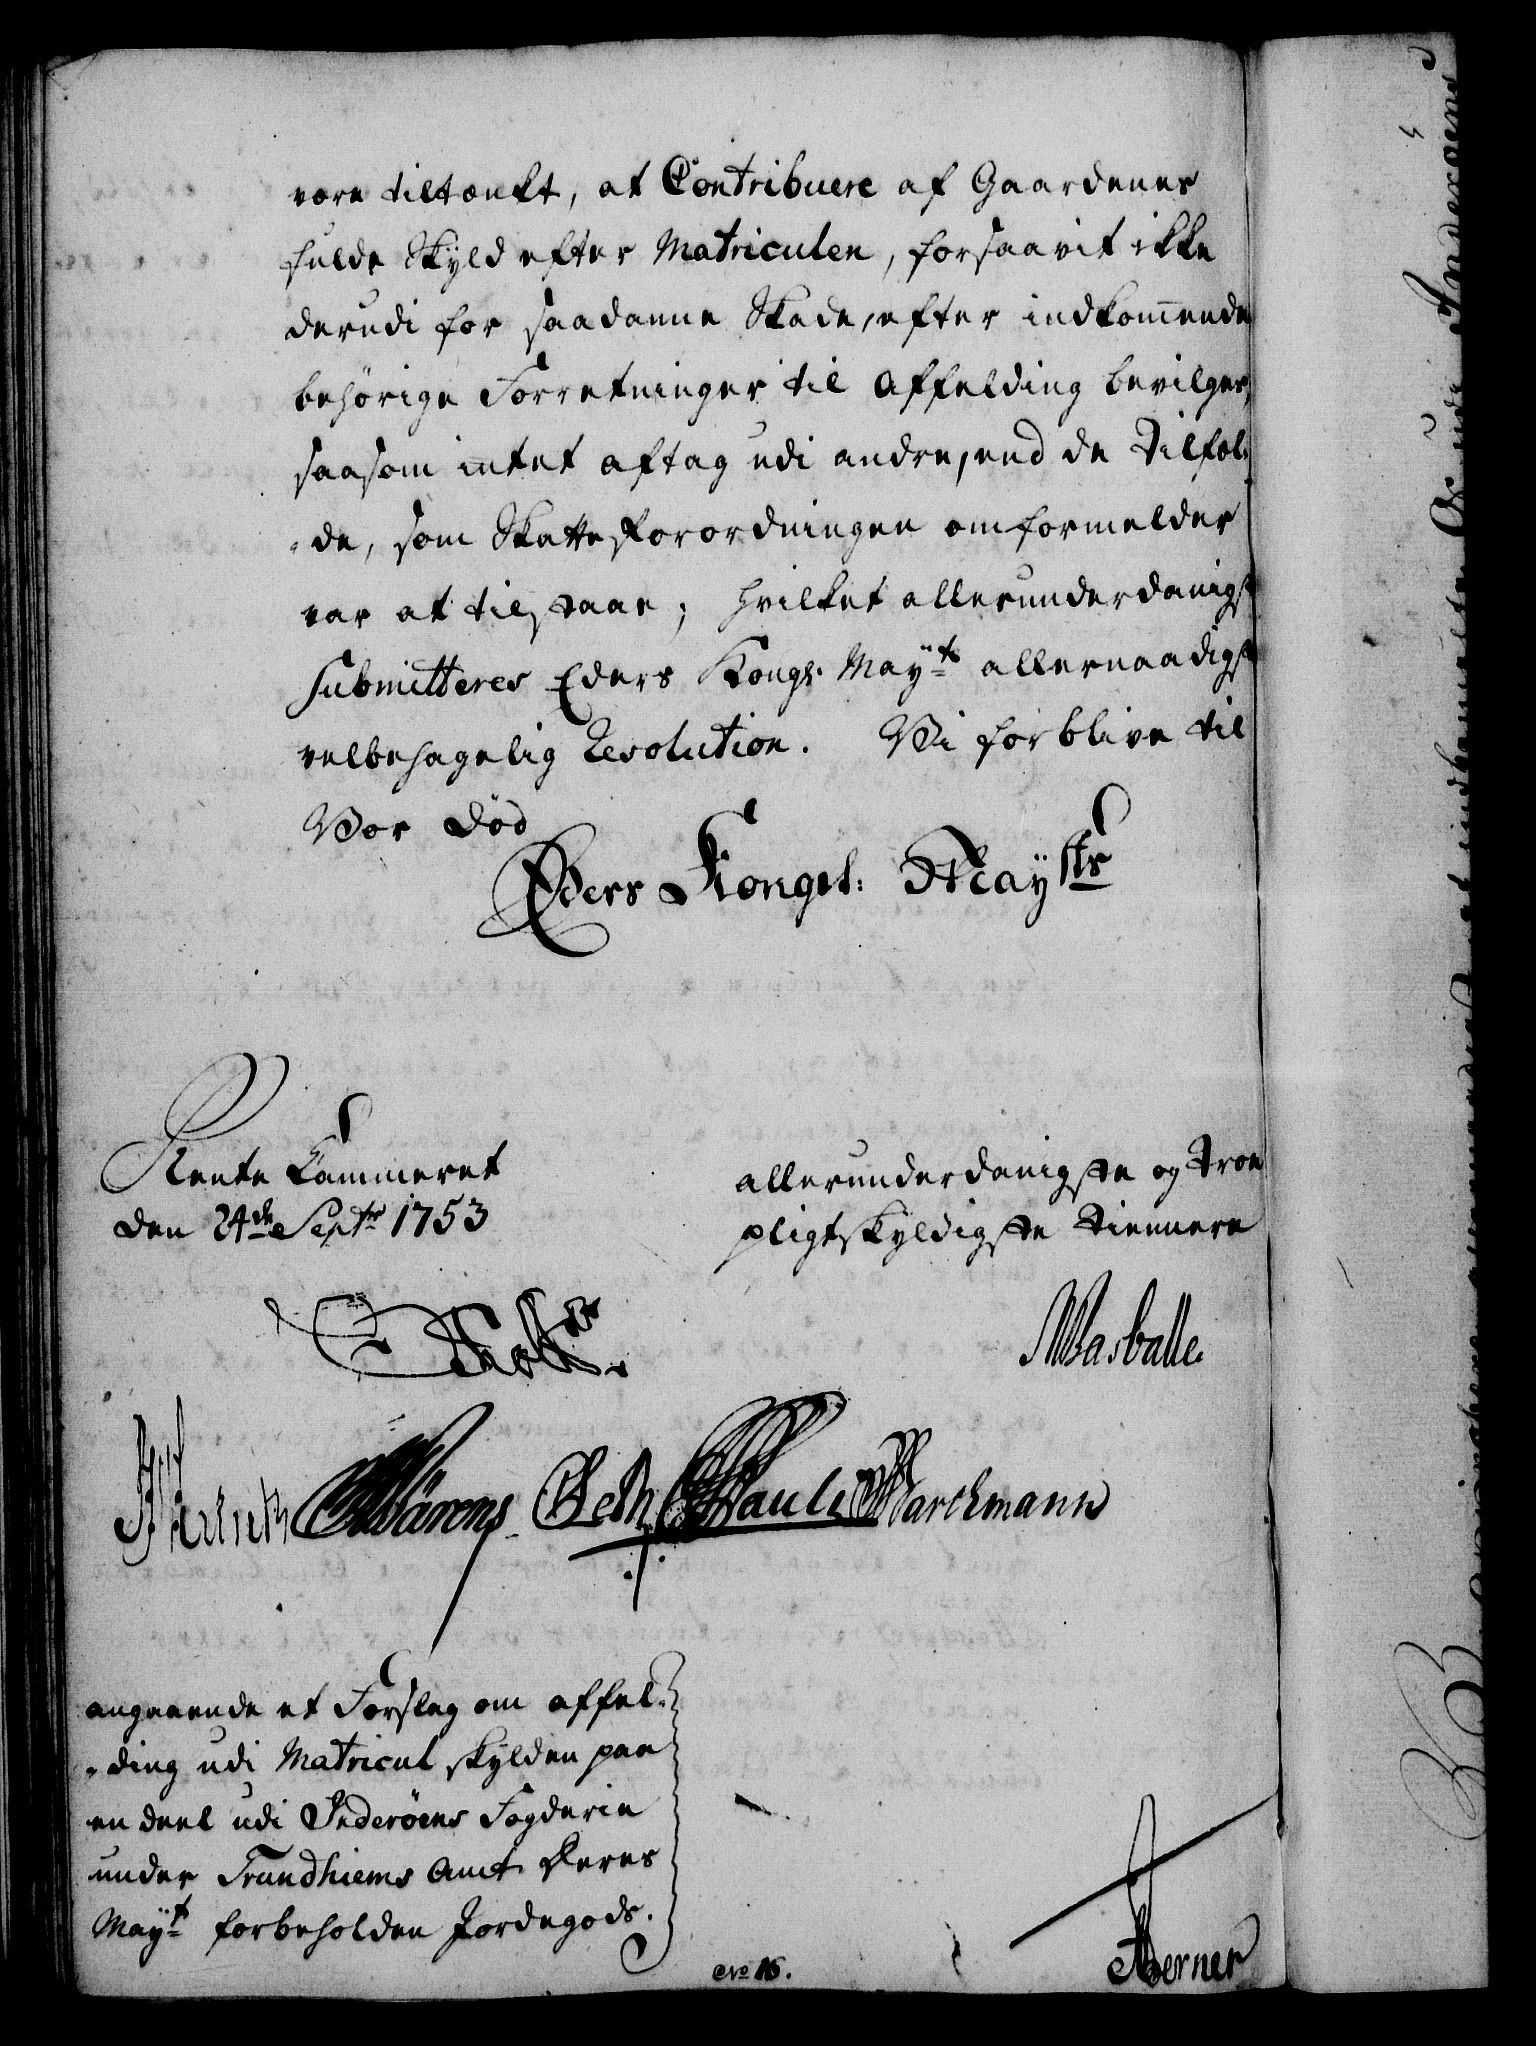 være tiltænkt, at Contribuere af Gaardenes
fulde Skyld efter Matriculen, forsaavit ikke
derudi for saadanne Skade, efter indkom̅ende
behörige Forretninger til Affelding bevilges,
saasom intet aftag udi andre, end de Tilfæl-
-de, som Skatteforordningen omformelder
var at tilstaae; hvilket allerunderdanigst
submitteres Eders Kongl. Mayts allernaadigst
velbehagelig Resolution. Vi forblive til
Vor Död
Eders Kongel: Maysts
Rente Kammeret
den 24de Septr 1753
allerunderdanigste og Troe
pligtskyldigste Tiennere
Wasballe.
Wärens Seth Paul Marckmann
angaaende et Forslag om affel-
-ding udi Matricul skylden paa
en deel udi Inderöens Fogderie
under Trundhiems Amt Deres
Mayt forbeholden Jordegods.
No 16.
Berner